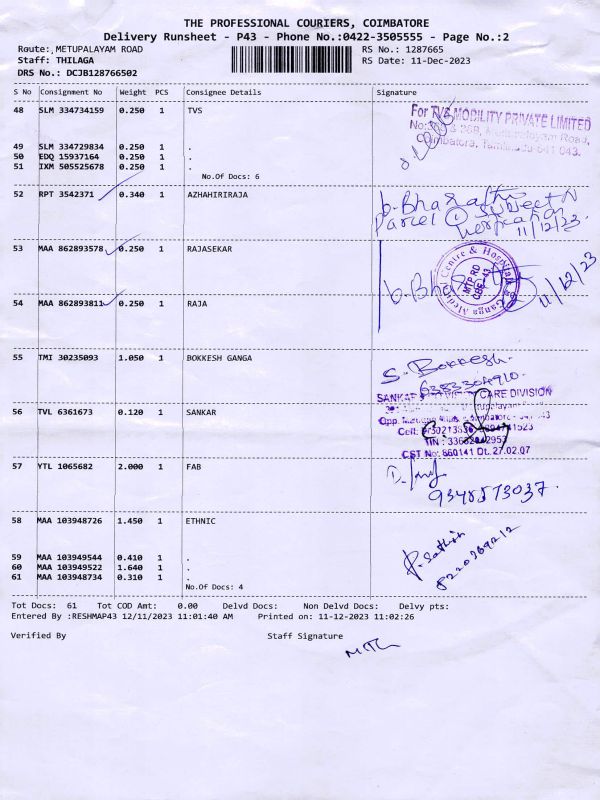 THE PROFESSIONAL COURIERS, COIMBATORE
Delivery Runsheet - P43 - Phone No.:0422-3505555 - Page No.:2
Route:,METUPALAYAM ROAD RS No.: 1287665
Staff: THILAGA RS Date: 11-Dec-2023
DRS No.: DCJB128766502
S No Consignment No Weight PCS Consignee Details Signature
48 SLM 334734159 0.250 1 TVS
For TVS MOBILITY PRIVATE LIMITED
Coimbatore, Tamilnadu-641 043.
49 SLM 334729834 0.250 1 .
50 EDQ 15937164 0.250 1 .
51 IXM 505525678 0.250 1 .
No.Of Docs: 6
52 RPT 3542371 0.340 1 AZHAHIRIRAJA
b.Bharathi
Parcel ① Subject
11/12/23
53 MAA 862893578 0.250 1 RAJASEKAR
Ganga Medical Centre & Hospital
MTP RD
CBE-43
11/12/23
54 MAA 862893811 0.250 1 RAJA
55 TMI 30235093 1.050 1 BOKKESH GANGA
S. Bokkesh.
56 TVL 6361673 0.120 1 SANKAR
CARE DIVISION
CST No: 860141 Dt. 27.02.07
57 YTL 1065682 2.000 1 FAB
9348573037.
58 MAA 103948726 1.450 1 ETHNIC
P. Sathish
8220369212
59 MAA 103949544 0.410 1 .
60 MAA 103949522 1.640 1 .
61 MAA 103948734 0.310 1 .
No.Of Docs: 4
Tot Docs: 61 Tot COD Amt: 0.00 Delvd Docs: Non Delvd Docs: Delvy pts:
Entered By :RESHMAP43 12/11/2023 11:01:40 AM Printed on: 11-12-2023 11:02:26
Verified By Staff Signature